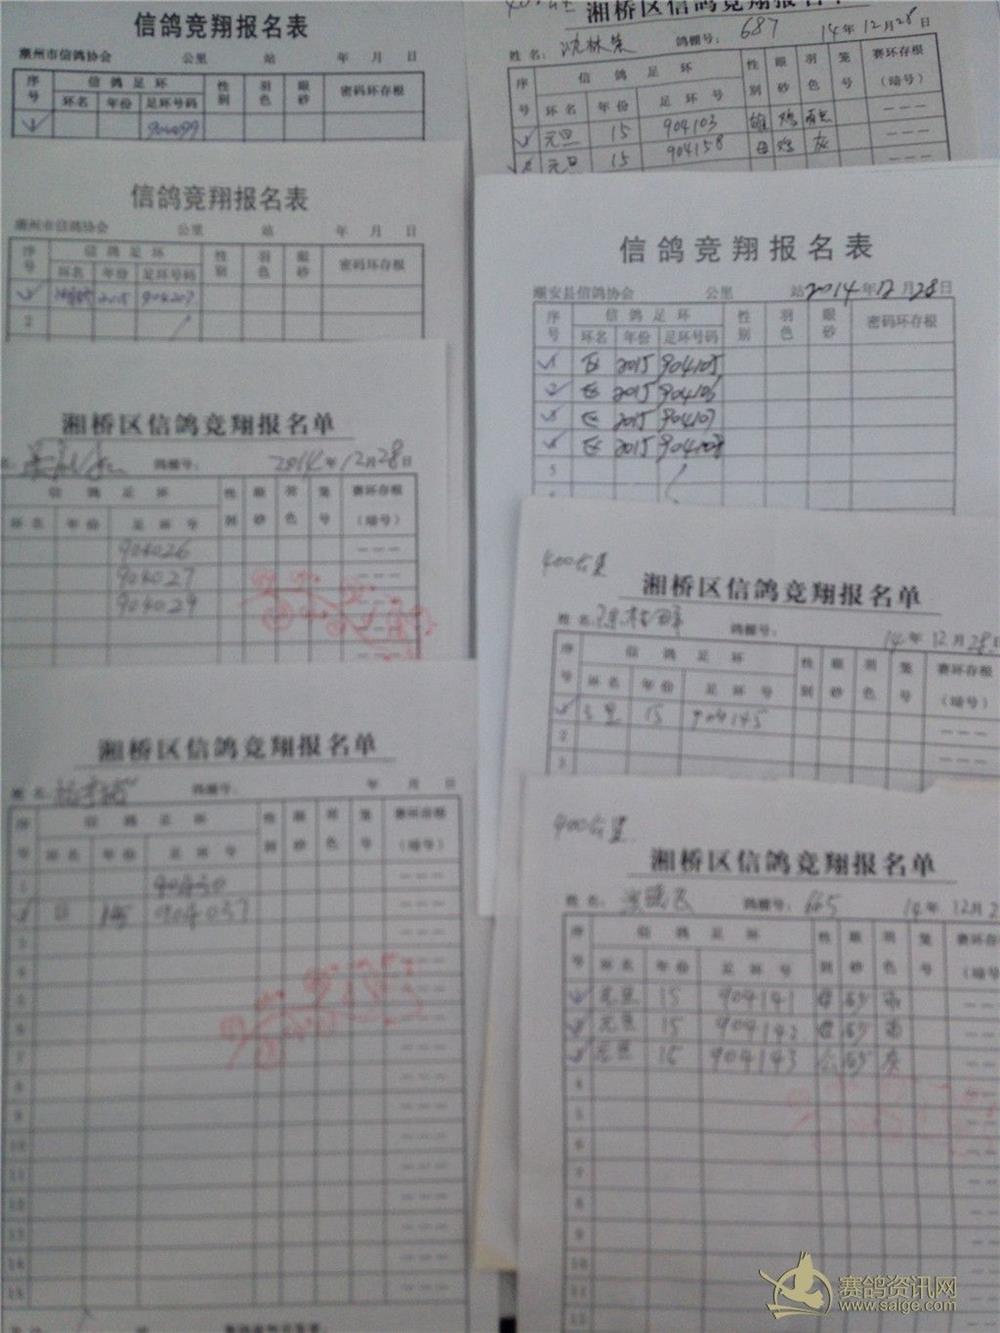 信鸽竞翔报名表
潮州市信鸽协会 公里 站 年 月 日
序号 信鸽足环 性别 羽色 眼砂 密码环存根
环名 年份 足环号码
1 904099
信鸽竞翔报名表
潮州市信鸽协会 公里 站 年 月 日
序号 信鸽足环 性别 羽色 眼砂 密码环存根
环名 年份 足环号码
2015 904207
2
湘桥区信鸽竞翔报名单
鸽棚号: 2014年12月28日
信鸽足环 性别 眼砂 羽色 笼号 赛环存根(暗号)
环名 年份 足环号
904026
904027
904029
湘桥区信鸽竞翔报名单
姓名: 鸽棚号: 年 月 日
序号 信鸽足环 性别 眼砂 羽色 笼号 赛环存根(暗号)
环名 年份 足环号
1
904037
3
4
5
6
7
8
9
10
11
12
13
14
15
湘桥区信鸽竞翔报名单
姓名: 沈林 鸽棚号: 687 14年12月28日
序号 信鸽足环 性别 眼砂 羽色 笼号 赛环存根(暗号)
环名 年份 足环号
元旦 15 904103 雄
元旦 15 904158 母 灰
信鸽竞翔报名表
潮安县信鸽协会 公里 站 2014年12月28日
序号 信鸽足环 性别 羽色 眼砂 密码环存根
环名 年份 足环号码
1 2015 904105
2 2015 904106
3 2015 904107
4 2015 904108
5
400公里
湘桥区信鸽竞翔报名单
姓名: 鸽棚号: 14年12月28日
序号 信鸽足环 性别 眼砂 羽色 笼号 赛环存根(暗号)
环名 年份 足环号
15 904145
2
3
400公里
湘桥区信鸽竞翔报名单
姓名: 鸽棚号: 665 14年12月2
序号 信鸽足环 性别 眼砂 羽色 笼号 赛环存根(暗号)
环名 年份 足环号
元旦 15 904141 母 砂
元旦 15 904142 母 砂
元旦 15 904143 公 砂 灰
4
5
6
7
8
9
10
11
12
13
赛鸽资讯网
www.saige.com